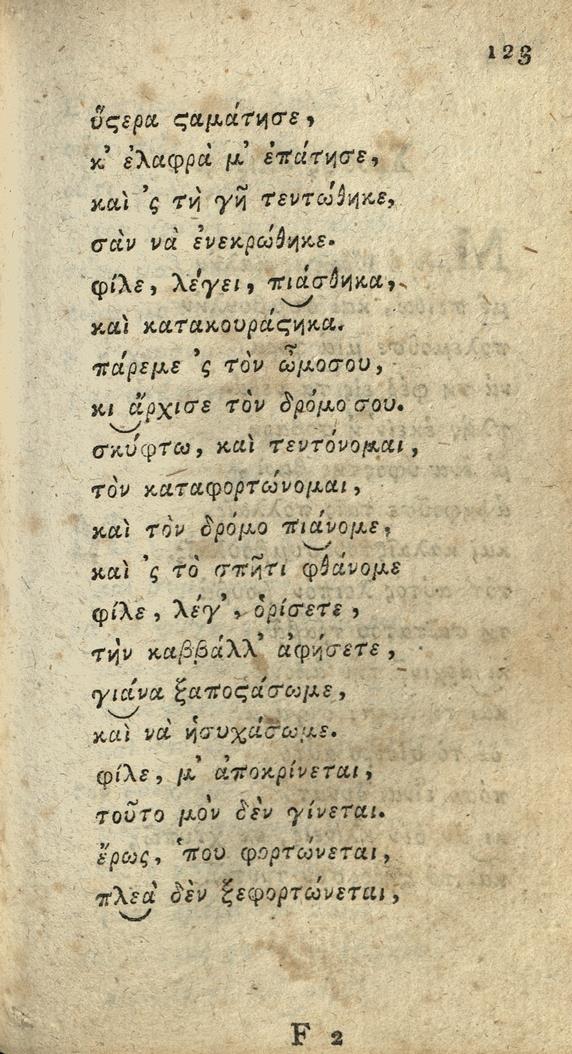 123
ὕϛερα ϛαμάτησε,
κ' ἐλαφρὰ μ' ἐπάτησε,
καὶ 'ς τὴ γῆ τεντώθηκε,
σὰν νὰ ἐνεκρώθηκε.
φίλε, λέγει, πιάσθηκα,
καὶ κατακουράϛηκα.
πάρεμε 'ς τὸν ὦμοσου,
κι ἄρχισε τὸν δρόμο σου.
σκύφτω, καὶ τεντόνομαι,
τὸν καταφορτώνομαι,
καὶ τὸν δρόμο πιάνομε,
καὶ 'ς τὸ σπῆτι φθάνομε
φίλε, λέγ', ὁρίσετε,
τὴν καββάλλ' ἀφήσετε,
γιάνα ξαποϛάσωμε,
καὶ νὰ ἡσυχάσωμε.
φίλε, μ' ἀποκρίνεται,
τοῦτο μὸν δὲν γίνεται.
ἔρως, ὁ̔που φορτώνεται,
πλεὰ δὲν ξεφορτώνεται,
F 2